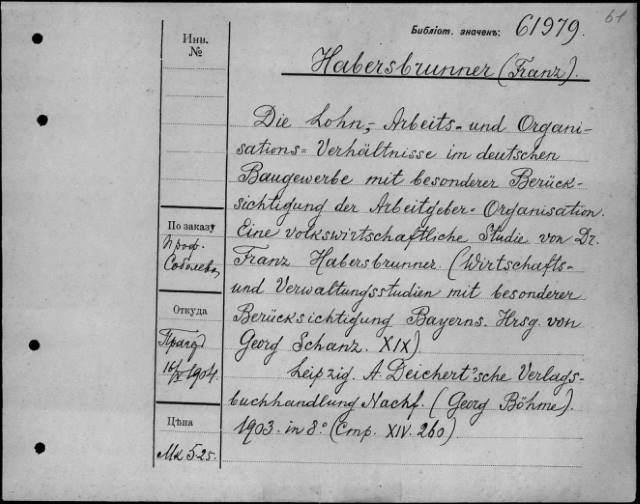 61
Библіот. значекъ: 61979.
Инв.
№
Habersbrunner (Franz).
Die Lohn-, Arbeits- und Organi-
sations- Verhältnisse im deutschen
Baugewerbe mit besonderer Berück-
sichtigung der Arbeitgeber-Organisation.
Eine volkswirtschaftliche Studie von Dr.
Franz Habersbrunner. (Wirtschafts-
und Verwaltungsstudien mit besonderer
Berücksichtigung Bayerns. Hrsg. von
Georg Schanz. XIX)
Leipzig. A. Deichert'sche Verlags-
buchhandlung Nachf. (Georg Böhme).
1903. in 8° (Стр. XIV. 260)
По заказу
Проф.
Соболева
Откуда
1904.
Цѣна
Mk 5 25.